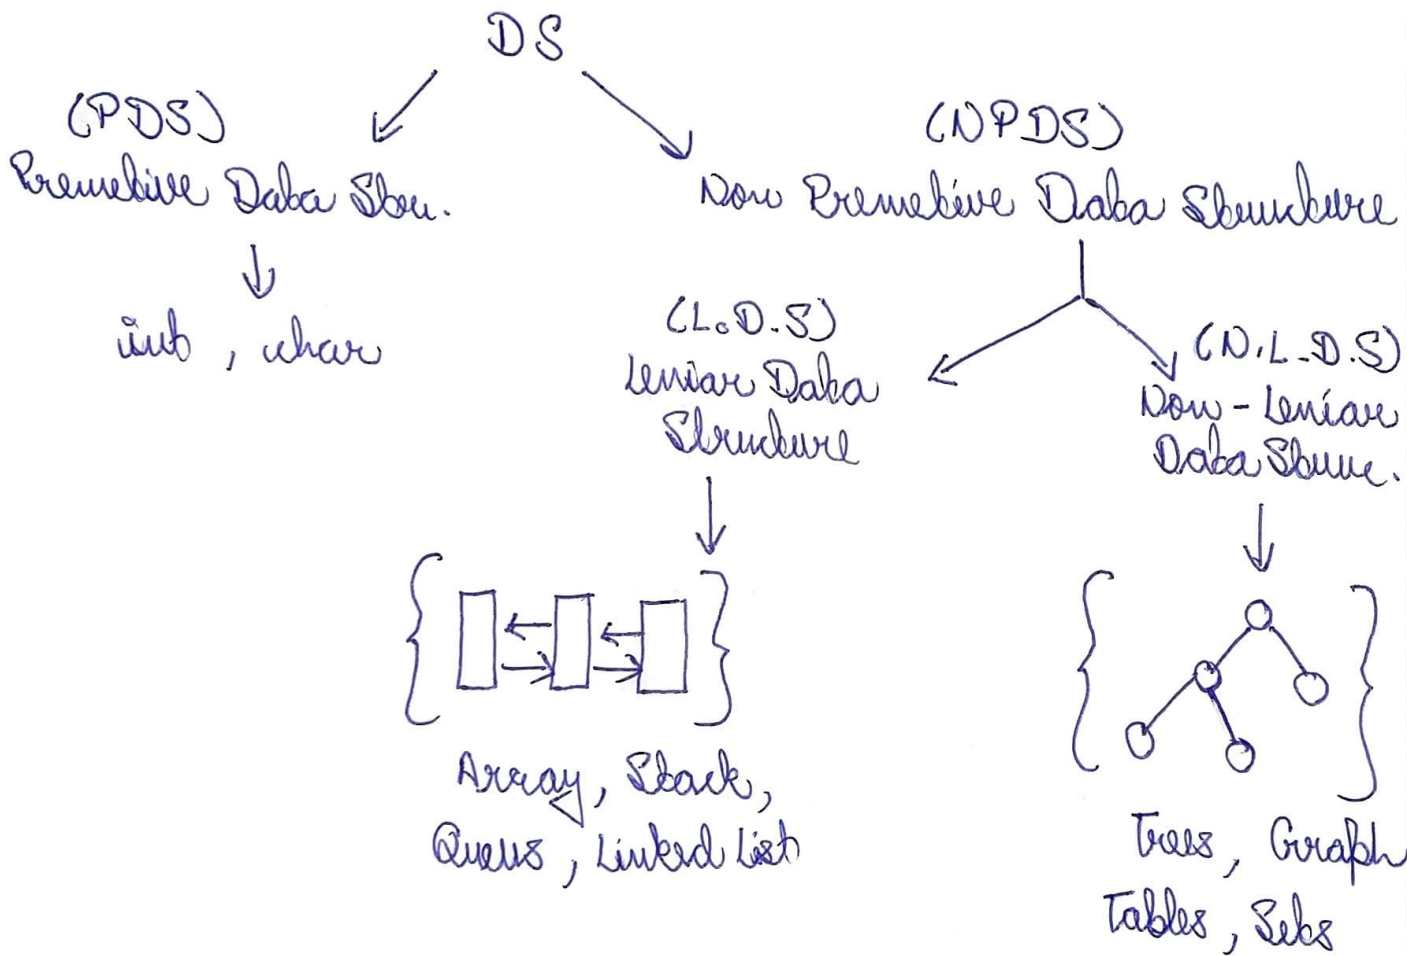 DS
(PDS)
Premetive Data Stru.
int, char
(NPDS)
Non Premetive Data Structure
(L.D.S)
Leniar Data
Structure
Array, Stack,
Queus, Linked List
(N.L.D.S)
Non-Leniar
Data Struc.
Trees, Graph
Tables, Sets